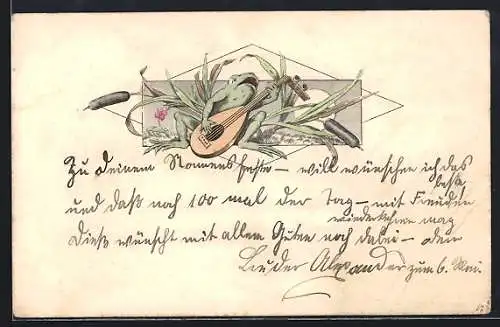 Zu Deinem Namensfeste – will wünschen ich das
beste,
und daß noch 100 mal der Tag – mit Freuden
wiederkehren mag
Dieß wünscht mit allem Guten noch dabei – Dein
Bruder Alexander zum 6. Mai.